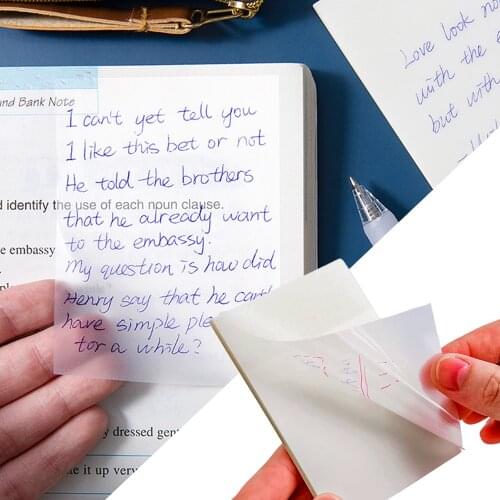 und Bank Note
I can't yet tell you
I like this bet or not
He told the brothers
d identify the use of each noun clause.
that he already want
e embassy
to the embassy.
My question is how did
Henry say that he can't
have simple ple
for a while?
y dressed gent
e it up very
Love look no
with the e
but with